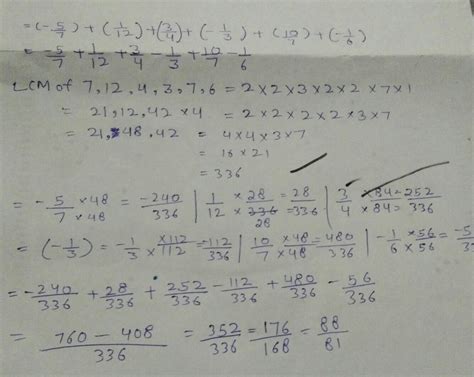 = (-5/7) + (1/12) + (3/4) + (-1/3) + (10/7) + (-1/6)
= -5/7 + 1/12 + 3/4 - 1/3 + 10/7 - 1/6
LCM of 7,12,4,3,7,6 = 2×2×3×2×2×7×1
= 21,12,42×4 = 2×2×2×2×3×7
= 21,48,42 = 4×4×3×7
= 16×21
= 336
= -5/7 ×48/×48 = -240/336 | 1/12 × 28/28 = 28/336 | 3/4 ×84/×84 = 252/336
= (-1/3) = -1/3 × ×112/112 = -112/336 | 10/7 ×48/×48 = 480/336 | -1/6 ×56/×56 = -5
= -240/336 + 28/336 + 252/336 - 112/336 + 480/336 - 56/336
= 760 - 408/336 = 352/336 = 176/168 = 88/81